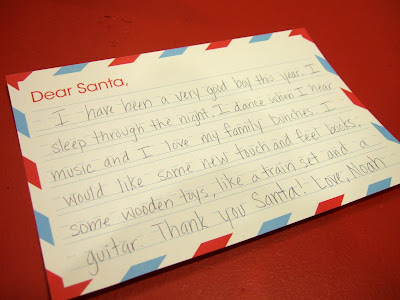 Dear Santa,
I have been a very good boy this year. I
sleep through the night. I dance when I hear
music and I love my family bunches. I
would like some new touch and feel books,
some wooden toys, like a train set and a
guitar. Thank you Santa! Love, Noah